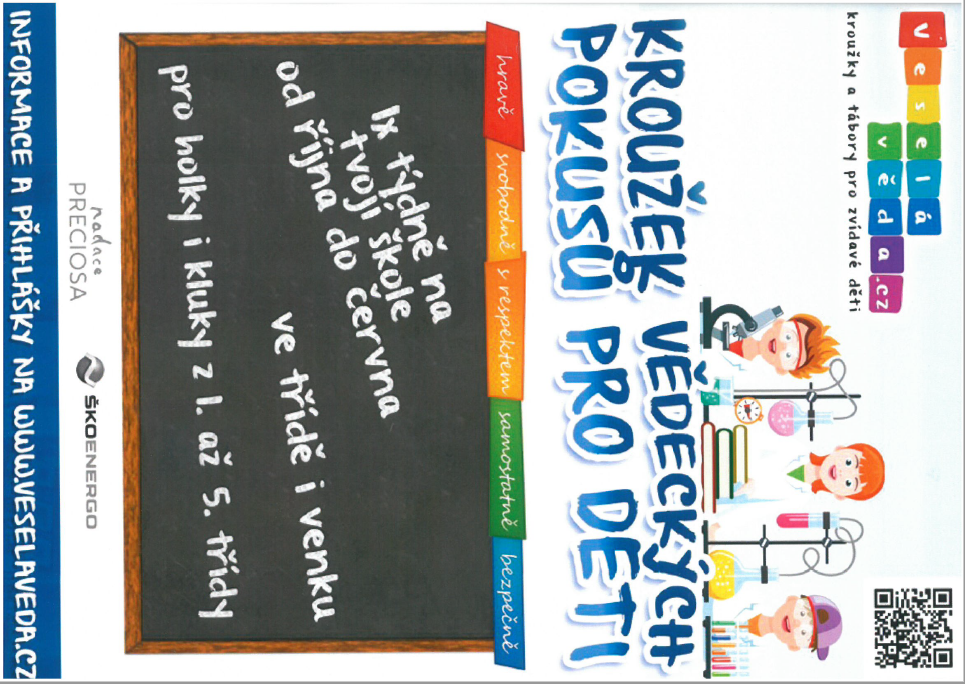 Veselá
věda.cz
kroužky a tábory pro zvídavé děti
KROUŽEK VĚDECKÝCH
POKUSŮ PRO DĚTI
hravě svobodně s respektem samostatně bezpečně
1x týdně na
tvojí škole
od října do června
ve třídě i venku
pro holky i kluky z 1. až 5. třídy
nadace
PRECIOSA
ŠKOENERGO
INFORMACE A PŘIHLÁŠKY NA WWW.VESELAVEDA.CZ